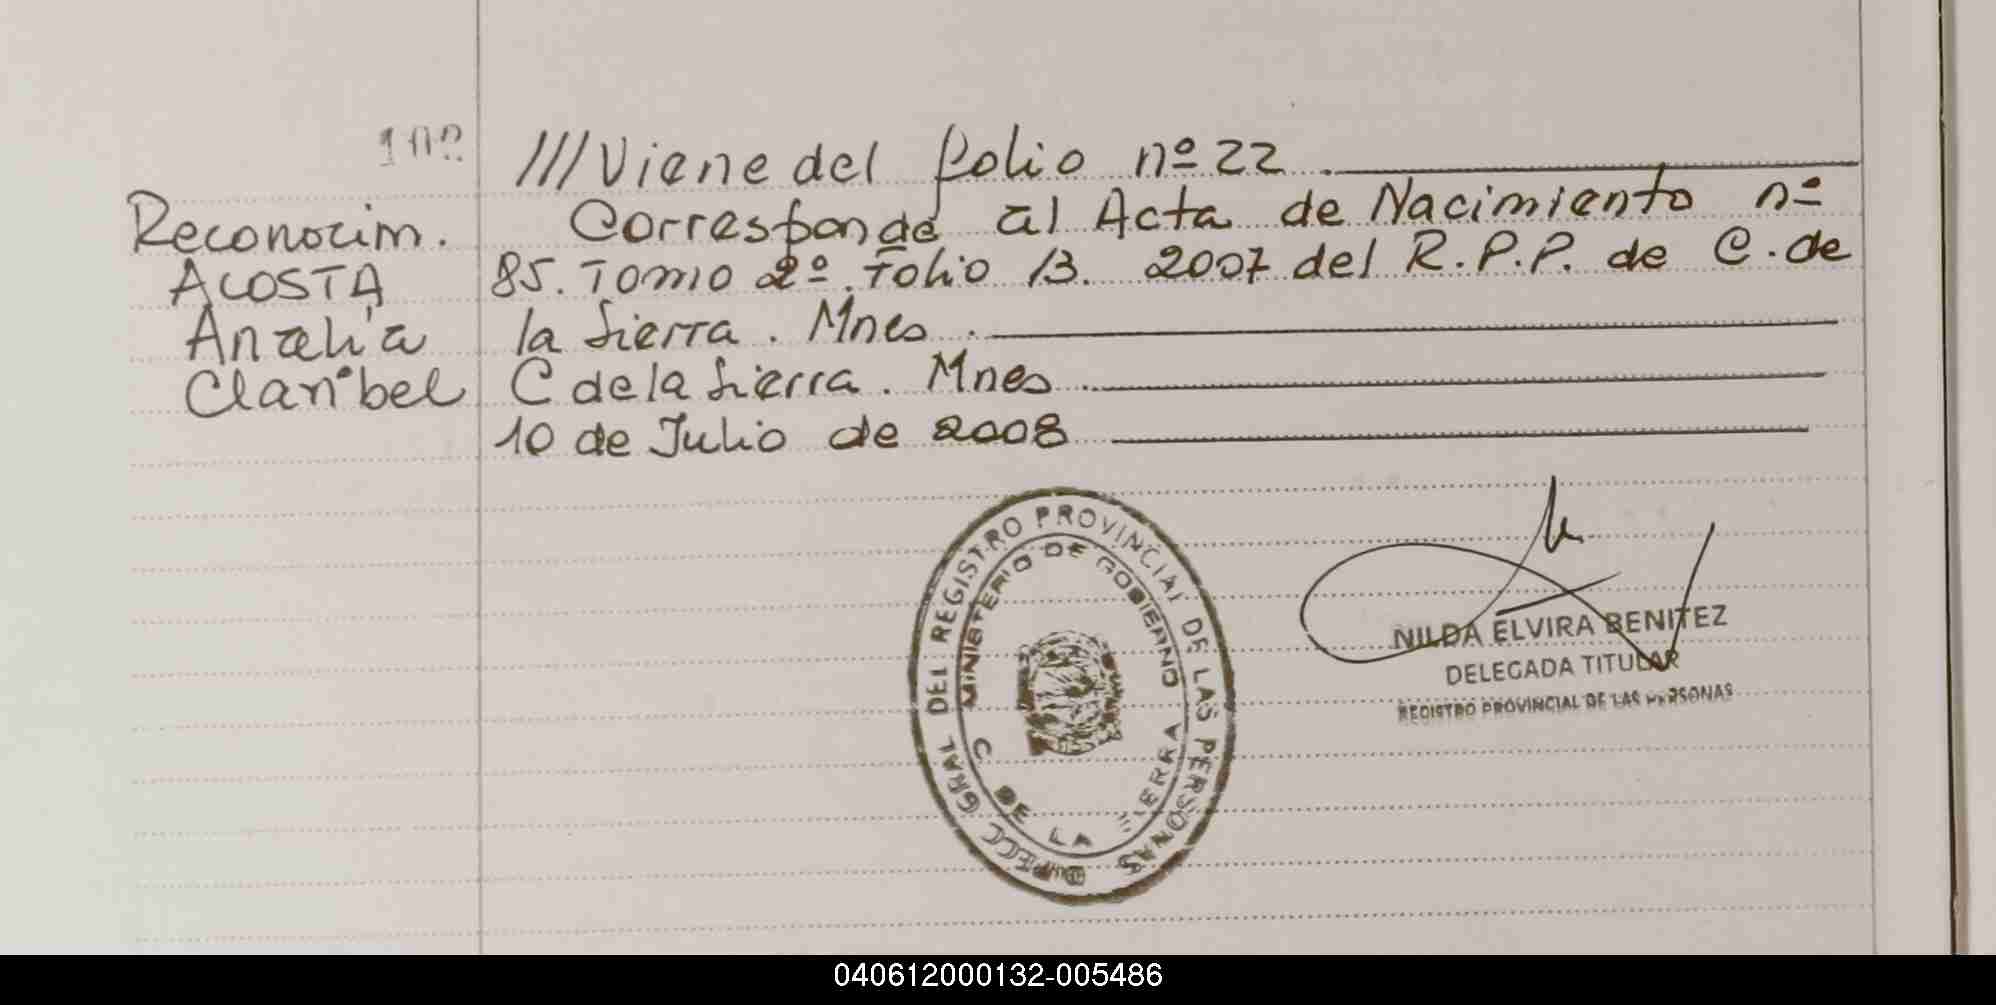 ///Viene del folio nº 22.
Reconocim. Corresponde al Acta de Nacimiento nº
ACOSTA 85. Tomo 2º. Folio 13. 2007 del R.P.P. de C. de
Analía la Sierra. Mnes.
Claribel C de la Sierra. Mnes
10 de Julio de 2008
GRAL DEL REGISTRO PROVINCIAL DE LAS PERSONAS
MINISTERIO DE GOBIERNO
C DE LA
NILDA ELVIRA BENITEZ
DELEGADA TITULAR
REGISTRO PROVINCIAL DE LAS PERSONAS
040612000132-005486